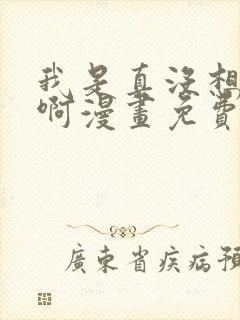 我是真没想
啊漫畫免費
廣東省疾病預